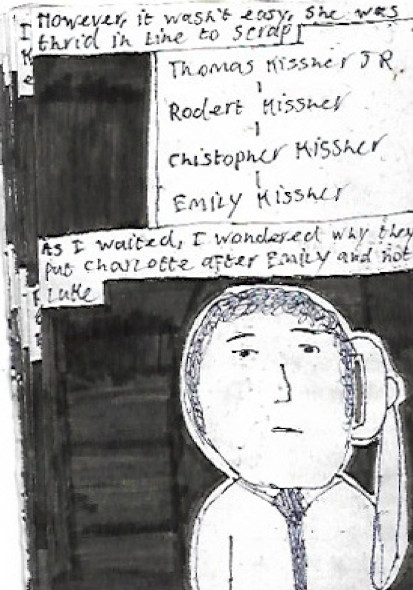 However, it wasn't easy, She was
thrid in Line to scrap
Thomas Kissner JR
Rodert Kissner
Chistopher Kissner
Emily Kissner
As I waited, I wondered why they
put Charlotte after Emily and not
Luke